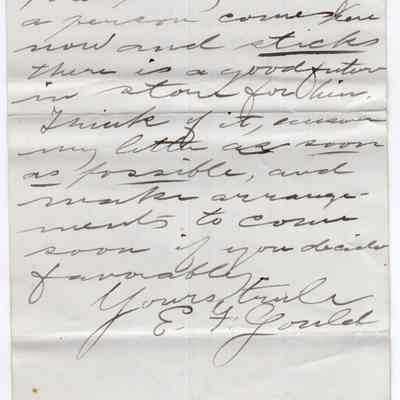 a person comes here
now and sticks
there is a good futur
in store for him.
Think of it, answer
my letter as soon
as possible, and
make arrange-
ments to come
soon if you decide
favorable
Yours truly
E. F. Gould